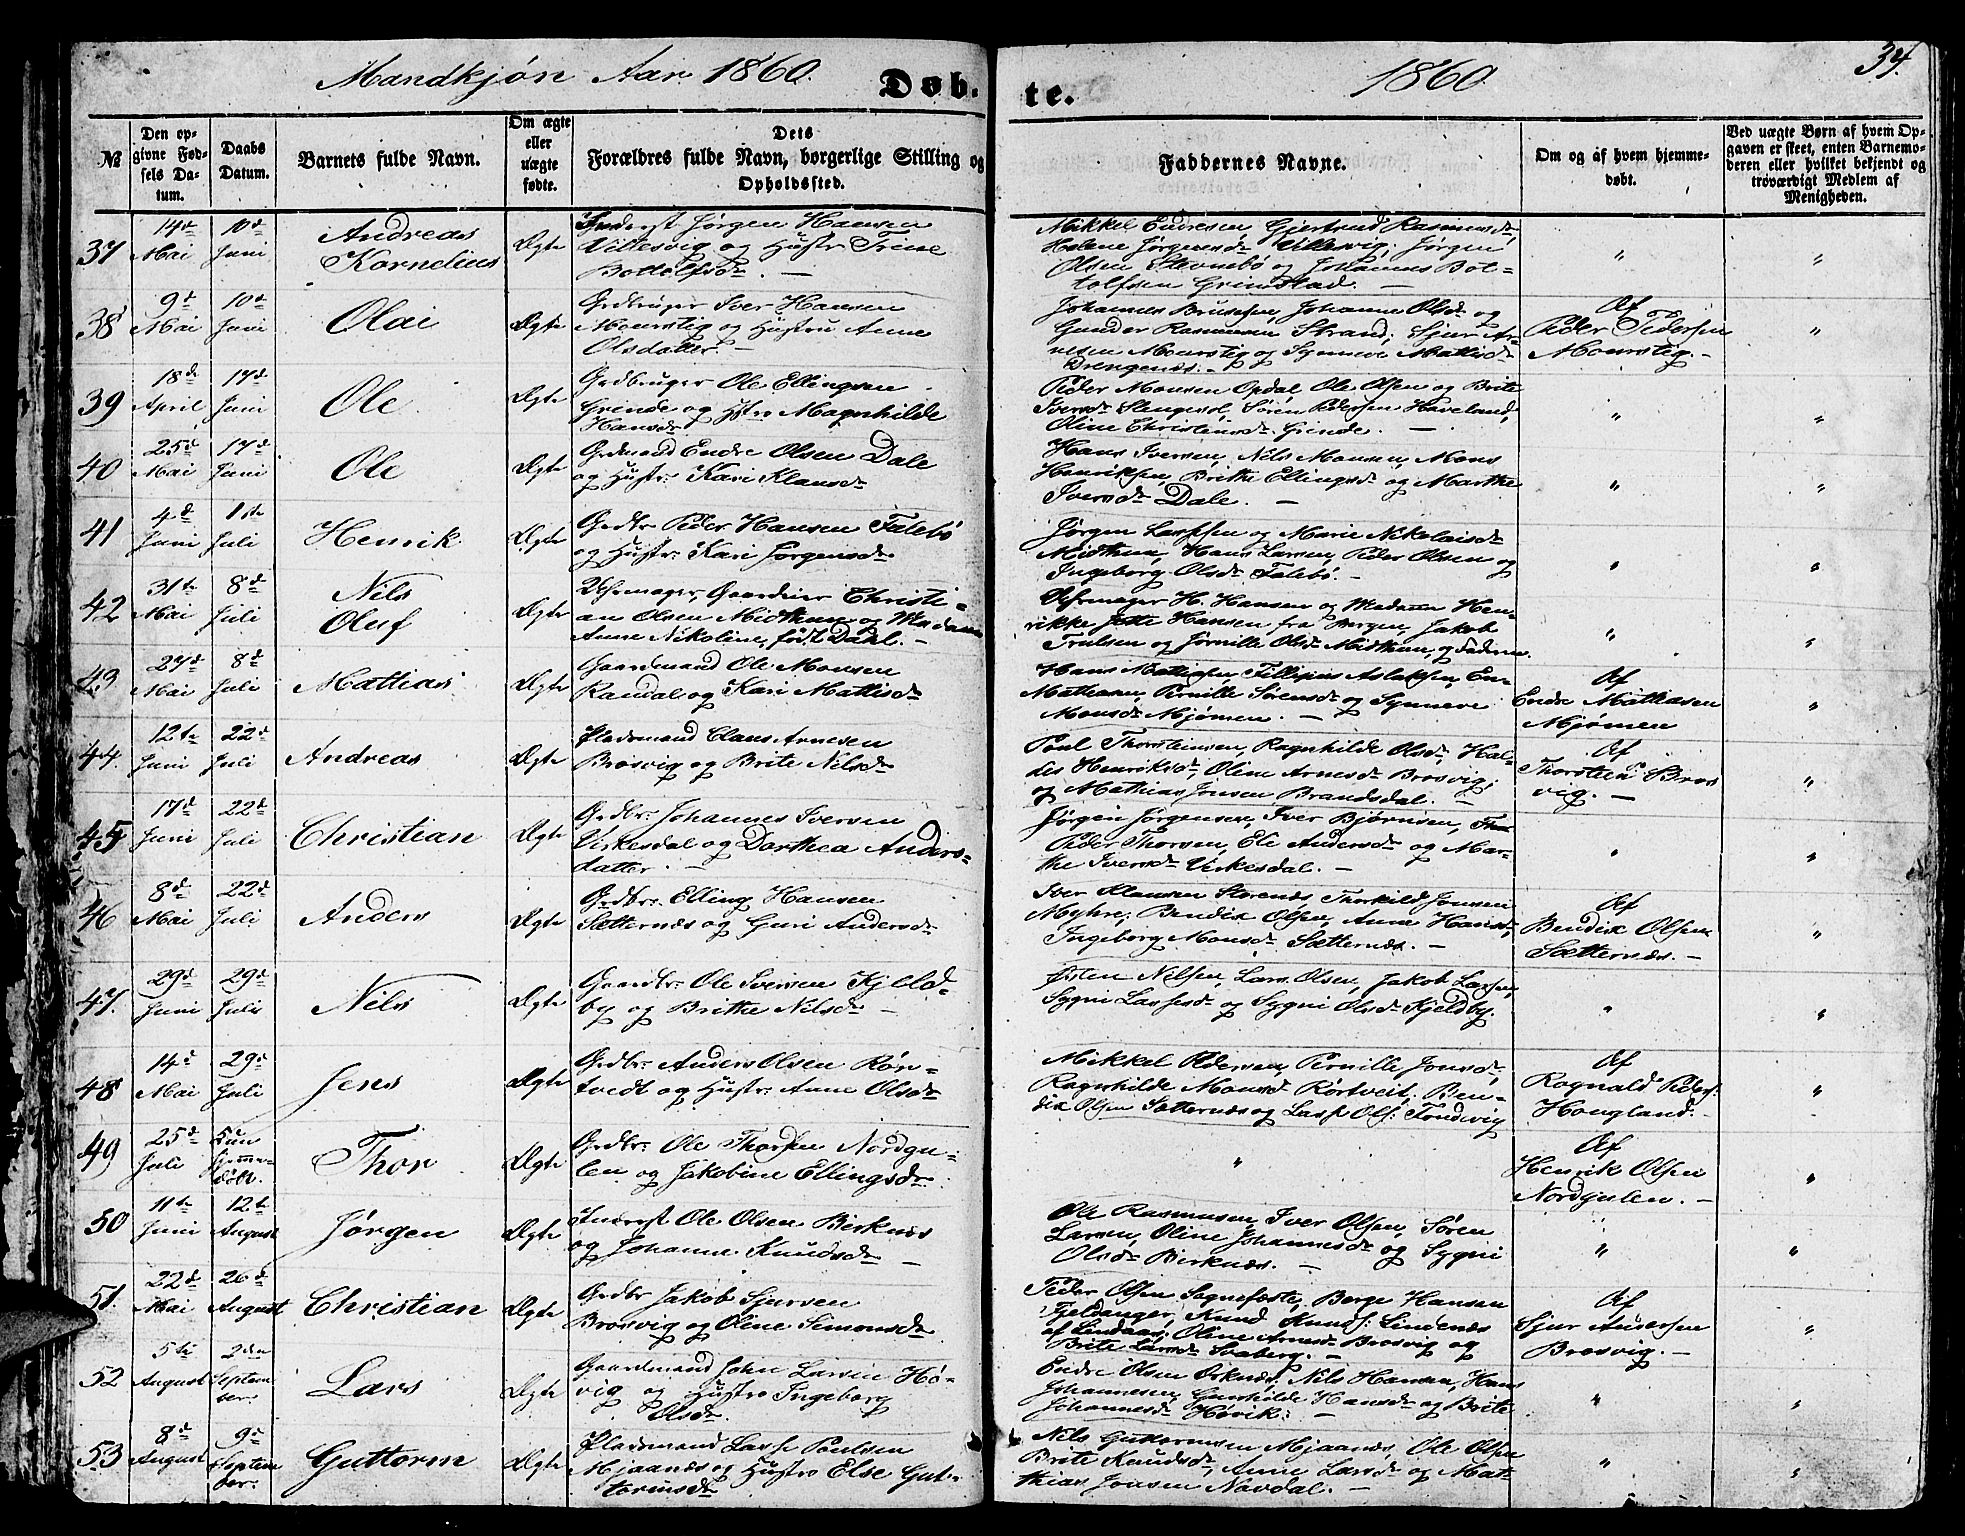 Mandkjøn Aar 1860. Døb-
te. 1860 34.
№
Den op-
givne Fød-
sels Da-
tum.
Daabs
Datum.
Barnets fulde Navn.
Om ægte
eller
uægte
fødte.
Dets
Forældres fulde Navn, borgerlige Stilling og
Opholdssted.
Faddernes Navne.
Om og af hvem hjemme-
døbt.
Ved uægte Børn af hvem Op-
gaven er skeet, enten Barnemo-
deren eller hvilket bekjendt og
troværdigt Medlem af
Menigheden.
37
14de
Mai
10de
Juni
Andreas
Kornelius
Ægte
Inderst Jørgen Hansen
Villesvig og Hustr Trine
Bottolfsdr. —
Mikkel Endresen, Gjertrud Rasmusdr
Helene Jørgensdr Villesvig; Jørgen
Olsen Stevnebø og Johannes Bot-
tolfsen Grimstad. —
"
"
38
9de
Mai
10de
Juni
Olai
Ægte
Grdbruger Iver Hansen
Mourstig og Hustru Anne
Olsdatter. —
Johannes Brusesen, Johanne Olsdr og
Gunder Rasmussen Strand; Sjur Ar-
nesen Mourstig og Synneve Mattisdr
Drengenæs. —
Af
Peder Pedersen
Mourstig. —
"
39
18de
April
17de
Juni
Ole
Ægte
Grdbruger Ole Ellingsen
Grinde og Hstr. Magnhilde
Hansdr
Peder Monsen Opdal, Ole Olsen og Brite
Iversdr Slengesol, Søren Pedersen Haveland,
Oline Christensdr Grinde. —
"
"
40
25de
Mai
17de
Juni
Ole
Ægte
Grdmand Endre Olsen Dale
og Hustr. Kari Klausdr
Hans Iversen, Nils Monsen, Mons
Henriksen, Brithe Ellingsdr og Marthe
Iversdr Dale. —
"
"
41
4de
Juni
1ste
Juli
Henrik
Ægte
Grdbr. Peder Hansen Falebø
og Hustr. Kari Jørgensdr
Jørgen Lassesen og Marie Nikolaisdr
Midthun, Hans Larsen, Peder Olsen og
Ingeborg Olsdr Falebø. —
"
"
42
31te
Mai
8de
Juli
Nils
Oluf
Ægte
Uhrmager, Gaardeier Christi-
an Olsen Midthun og Madame
Anne Nikoline, født Dahl. —
Uhrmager H. Hansen og Madame Hen-
rikke Jette Hansen fra Bergen, Jakob
Trulsen og Jørnille Olsdr Midthun, og Faderen
"
"
43
27de
Mai
8de
Juli
Mathias
Ægte
Gaardmand Ole Monsen
Randal og Kari Mattisdr
Hans Mathiasen, Fillipus Aslaksen, En-
Mathiasen, Pernille Sørensdr og Synneve
Monsdr Mjømen. —
Af
Endre Mathiasen
Mjømen
"
44
12te
Juni
22de
Juli
Andreas
Ægte
Pladsmand Claus Arnesen
Brosvig og Brite Nilsdr
Poul Thorsteinsen, Ragnhilde Olsdr, Hal-
dis Henriksdr, Oline Arnesdr Brosvig;
og Mathias Jonsen Brandsdal. —
Af
Thorstein Bros
vig. —
"
45
17de
Juni
22de
Juli
Christian
Ægte
Grdbr. Johannes Iversen
Virkesdal og Dorthea Anders-
datter. —
Jørgen Jørgensen, Iver Bjørnsen,
Peder Thorsen, Eli Andersdr og Mar-
the Iversdr Virkesdal. —
"
"
46
8de
Mai
22de
Juli
Anders
Ægte
Grdbr. Elling Hansen
Sætternæs og Guri Andersdr
Iver Klausen Storenæs, Thorkild Jonsen
Myhre; Bendix Olsen, Anne Hansdr,
Ingeborg Monsdr Sætternæs. —
Af
Bendix Olsen
Sætternæs. —
"
47
29de
Juni
29de
Juli
Nils
Ægte
Gaardbr. Ole Iversen Kjeld-
by og Brithe Nilsdr —
Østen Nilsen, Lars Olsen, Jakob Lassesen,
Sygni Lassesdr og Sygni Olsdr Kjeldby.
"
"
48
14de
Mai
29de
Juli
Jens
Ægte
Grdbr. Anders Olsen Røn-
tvedt og Hustr. Anne Olsdr
Mikkel Pedersen, Pernille Jonsdr,
Ragnhilde Monsdr Rørtveit, Ben-
dix Olsen Sætternæs og Lasse Ols: Tondevig
Af
Ragnald Peders:
Hougland. -
"
49
25de
Juli
Kun
hjemme-
døbt.
Thor
Ægte
Grdbr. Ole Thorsen Nordgu-
len og Jakobine Ellingsdr
"
Af
Henrik Olsen
Nordgulen. —
"
50
11te
Juni
12te
August
Jørgen
Ægte
Inderst Ole Olsen Birknæs
og Johanne Knudsdr —
Ole Rasmusen, Iver Olsen, Søren
Larsen, Oline Johannesdr og Sygni
Olsdr Birknæs. —
"
"
51.
22de
Mai
26de
August
Christian
Ægte
Grdbr Jakob Sjursen
Brosvig og Oline Simonsdr
Peder Olsen Sognefæste, Berge Hansen
Fjeldanger, Knud Knuds: Lindenæs
af Lindaas; Oline Arnesdr Brosvig og
Brite Larsdr Svaberg. —
Af
Sjur Andersen
Brosvig. —
"
52
5te
August
2den
Septem
ber.
Lars
Ægte
Gaardmand John Larsen Hø-
vig og Hustro Ingeborg
Olsdr
Endre Olsen Birknæs, Nils Hansen, Hans
Johannesen, Gunhilde Hansdr og Brite
Johannesdr Høvik. —
"
"
53
8de
August
9de
Septem
ber.
Guttorm
Ægte
Pladsmand Lasse Poulsen
Mjaanæs og Hustro Else Gut-
tormsdr
Nils Guttormsen Mjaanæs, Ole Olsen
Brite Knudsdr, Anne Larsdr og Mat-
thias Jonsen Novdal. —
"
"